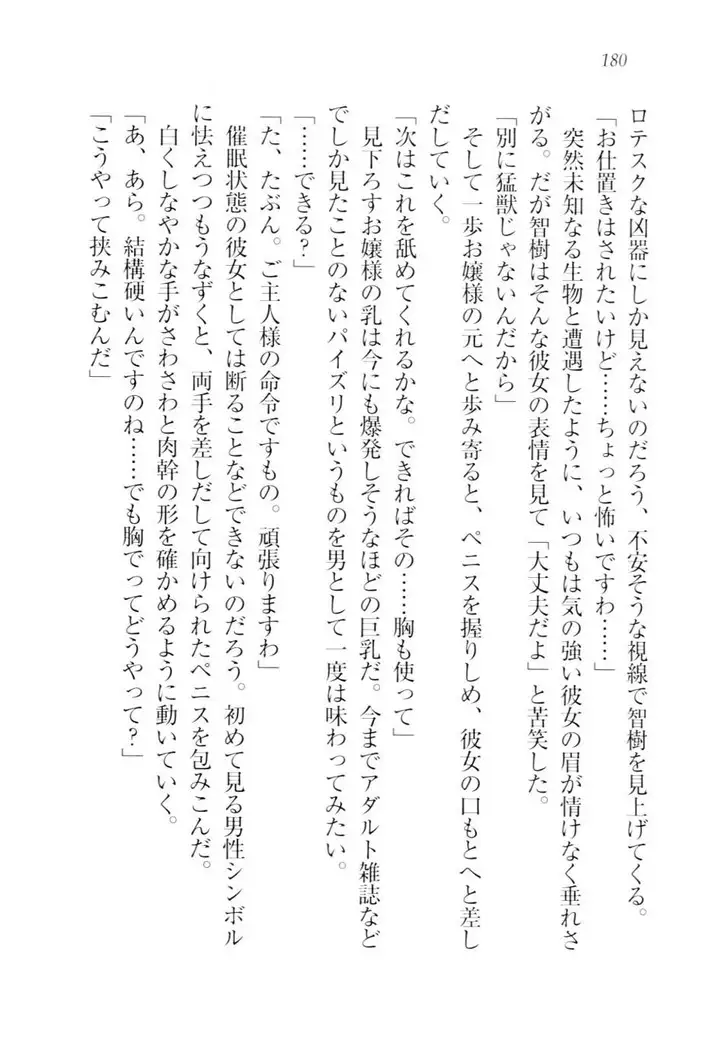 180
ロテスクな凶器にしか見えないのだろう、不安そうな視線で智樹を見上げてくる。
「お仕置きはされたいけど……ちょっと怖いですわ……」
突然未知なる生物と遭遇したように、いつもは気の強い彼女の眉が情けなく垂れさ
がる。だが智樹はそんな彼女の表情を見て「大丈夫だよ」と苦笑した。
「別に猛獣じゃないんだから」
そして一歩お嬢様の元へと歩み寄ると、ペニスを握りしめ、彼女の口もとへと差し
だしていく。
「次はこれを舐めてくれるかな。できればその……胸も使って」
見下ろすお嬢様の乳は今にも爆発しそうなほどの巨乳だ。今までアダルト雑誌など
でしか見たことのないパイズリというものを男として一度は味わってみたい。
「……できる?」
「た、たぶん。ご主人様の命令ですもの。頑張りますわ」
催眠状態の彼女としては断ることなどできないのだろう。初めて見る男性シンボル
に怯えつつもうなずくと、両手を差しだして向けられたペニスを包みこんだ。
白くしなやかな手がさわさわと肉幹の形を確かめるように動いていく。
「あ、あら。結構硬いんですのね……でも胸でってどうやって?」
「こうやって挟みこむんだ」